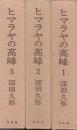 ヒマラヤの高峰
3
深田久弥
ヒマラヤの高峰
2
深田久弥
ヒマラヤの高峰
1
深田久弥